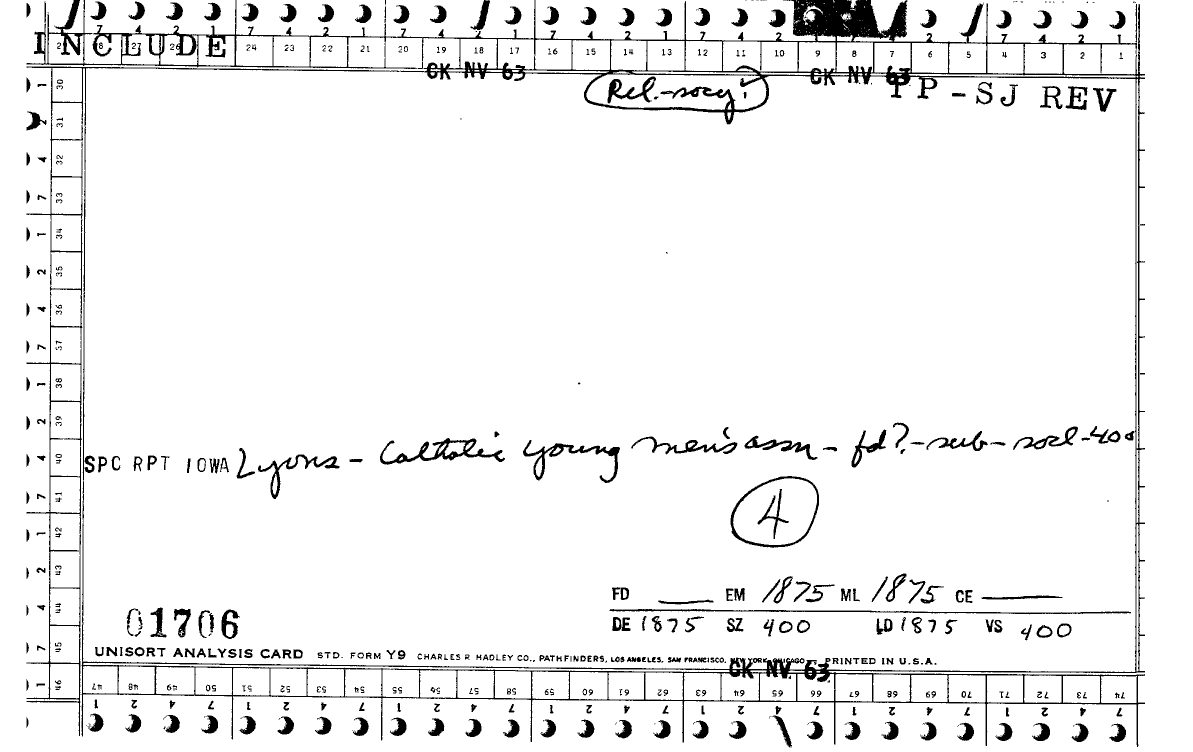 INCLUDE
7 4 2 1 7 4 2 1 7 4 2 1 7 4 2 1 7 4 2 1 7 4 2 1
24 23 22 21 20 19 18 17 16 15 14 13 12 11 10 9 8 7 6 5 4 3 2 1
CK NV 63
Rel.-socy?
CK NV 63
TP-SJ REV
1 30
31
4 32
7 33
1 34
2 35
4 36
7 37
1 38
2 39
4 40
7 41
1 42
2 43
4 44
7 45
1 46
SPC RPT IOWA Lyons - Catholic Young Men's assn - fd? - sub - socl - 400
4
FD ___ EM 1875 ML 1875 CE ___
DE 1875 SZ 400 LD 1875 VS 400
01706
UNISORT ANALYSIS CARD STD. FORM Y9 CHARLES R. HADLEY CO., PATHFINDERS, LOS ANGELES, SAN FRANCISCO, NEW YORK, CHICAGO PRINTED IN U.S.A.
CK NV 63
47 48 49 50 51 52 53 54 55 56 57 58 59 60 61 62 63 64 65 66 67 68 69 70 71 72 73 74
1 2 4 7 1 2 4 7 1 2 4 7 1 2 4 7 1 2 4 7 1 2 4 7 1 2 4 7